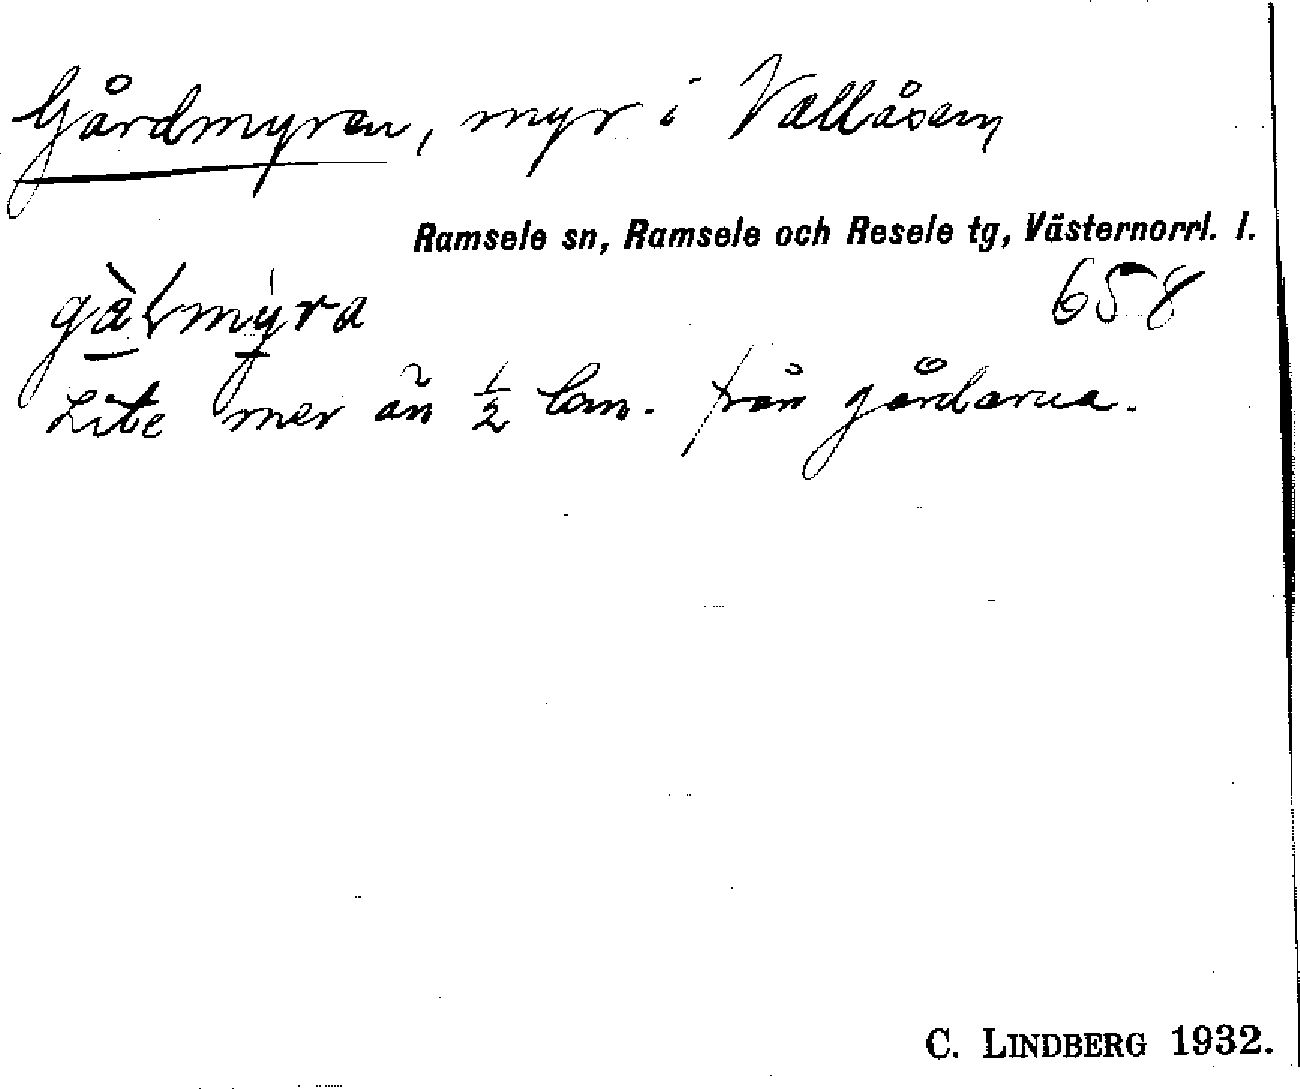 Gårdmyren, myr i Vallåsen
Ramsele sn, Ramsele och Resele tg, Västernorrl. l.
658
Lite mer än ½ km. från gårdarna.
C. LINDBERG 1932.